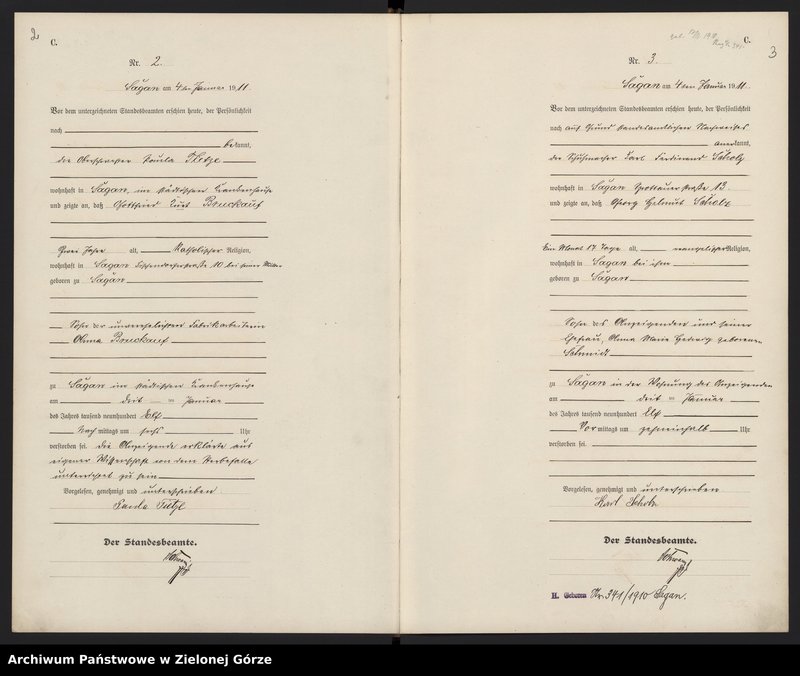 2
C.
Nr. 2.
Sagan am 4ten Januar 1911.
Vor dem unterzeichneten Standesbeamten erschien heute, der Persönlichkeit
nach
bekannt,
die Oberschwester Paula Tietze
wohnhaft in Sagan, im städtischen Krankenhause
und zeigte an, daß Gottfried Kurt Bruckauf
Zwei Jahre alt, katholischer Religion,
wohnhaft in Sagan 10 bei seiner Mutter
geboren zu Sagan
Sohn der unverehelichten Fabrikarbeiterin
Anna Bruckauf
zu Sagan im städtischen Krankenhause
am drit ten Januar
des Jahres tausend neunhundert Elf
Nach mittags um sechs Uhr
verstorben sei. Die Anzeigende erklärte aus
eigener Wissenschaft von dem Sterbefalle
unterrichtet zu sein
Vorgelesen, genehmigt und unterschrieben
Paula Tietze
Der Standesbeamte.
C.
3
Nr. 3.
Sagan am 4ten Januar 1911.
Vor dem unterzeichneten Standesbeamten erschien heute, der Persönlichkeit
nach auf Grund standesamtlichen Nachweises
anerkannt,
der Schuhmacher Karl Ferdinand Scholz
wohnhaft in Sagan Sprottauerstraße 13.
und zeigte an, daß Georg Helmut Scholz
Ein Monat 17 Tage alt, evangelischer Religion,
wohnhaft in Sagan bei ihm
geboren zu Sagan
Sohn des Anzeigenden und seiner
Ehefrau, Anna Marie Hedwig geborenen
Schmidt
zu Sagan in der Wohnung des Anzeigenden
am drit ten Januar
des Jahres tausend neunhundert Elf
Vor mittags um zehneinhalb Uhr
verstorben sei.
Vorgelesen, genehmigt und unterschrieben
Karl Scholz
Der Standesbeamte.
H. Geboren Nr. 341/1910 Sagan.
Archiwum Państwowe w Zielonej Górze